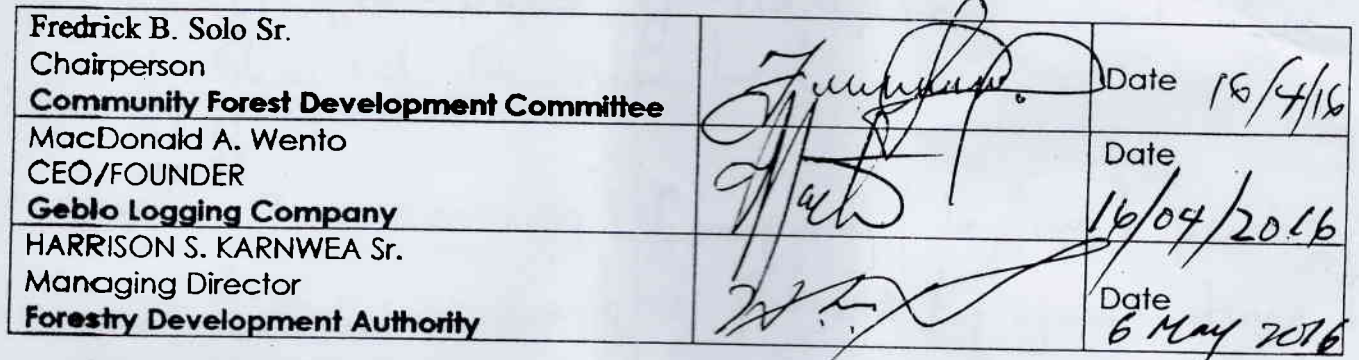 Fredrick B. Solo Sr.
Chairperson
Community Forest Development Committee
Date 16/4/16
MacDonald A. Wento
CEO/FOUNDER
Geblo Logging Company
Date
16/04/2016
HARRISON S. KARNWEA Sr.
Managing Director
Forestry Development Authority
Date
6 May 2016